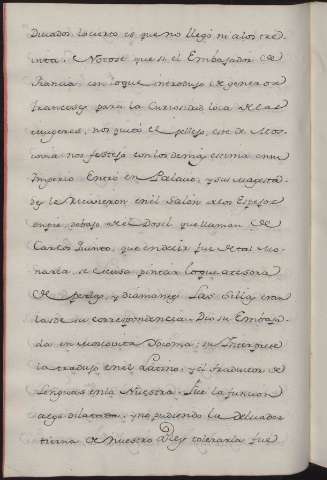 Ducados, lo cierto es, que no llegó ni a los tre-
inta. Notose que si el Embaxador de
Francia con lo que introdujo de generos
franceses para la Curiosidad loca de las
mugeres, nos quitó el pellejo, este de Mos-
covia nos festejó con los de mas estima en su
Imperio. Entró en Palacio, y sus Magesta-
des le recivieron en el Salon de los Espejos
en pie, debajo del Dosel que llaman de
Carlos Quinto, que en decir fue de tal Mo-
narca se escusa pintar lo que atesora
de perlas, y diamantes. Las sillas eran
las de su correspondencia. Dio su Embaja-
da en Moscovita Idioma; su Interprete
la tradujo en el Latino, y el traductor de
Lenguas en la Nuestra. Fue la funcion
algo dilatada, y no pudiendo la delicadez
tierna de nuestro Rey tolerarla fue